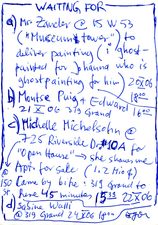 WAITING FOR
a) Mo Zareler @ 15 W 53
("Museum tower") to
deliver painting i ghost-
painted for Johanna who is
ghostpainting for him) 20X06
b) Montse Puig + Edward 18:00
21 X 06 319 GRAND 16:00
c) Michelle Michelsohn @
725 Riverside Dr #10A for
"open House" → she shows me
Apt. for sale (1.2 Mio $)
Came by bike: 319 Grand to
here 45 minutes 15:33 22X06
d) Sabina Walli
@ 319 Grand 24X06 18:00